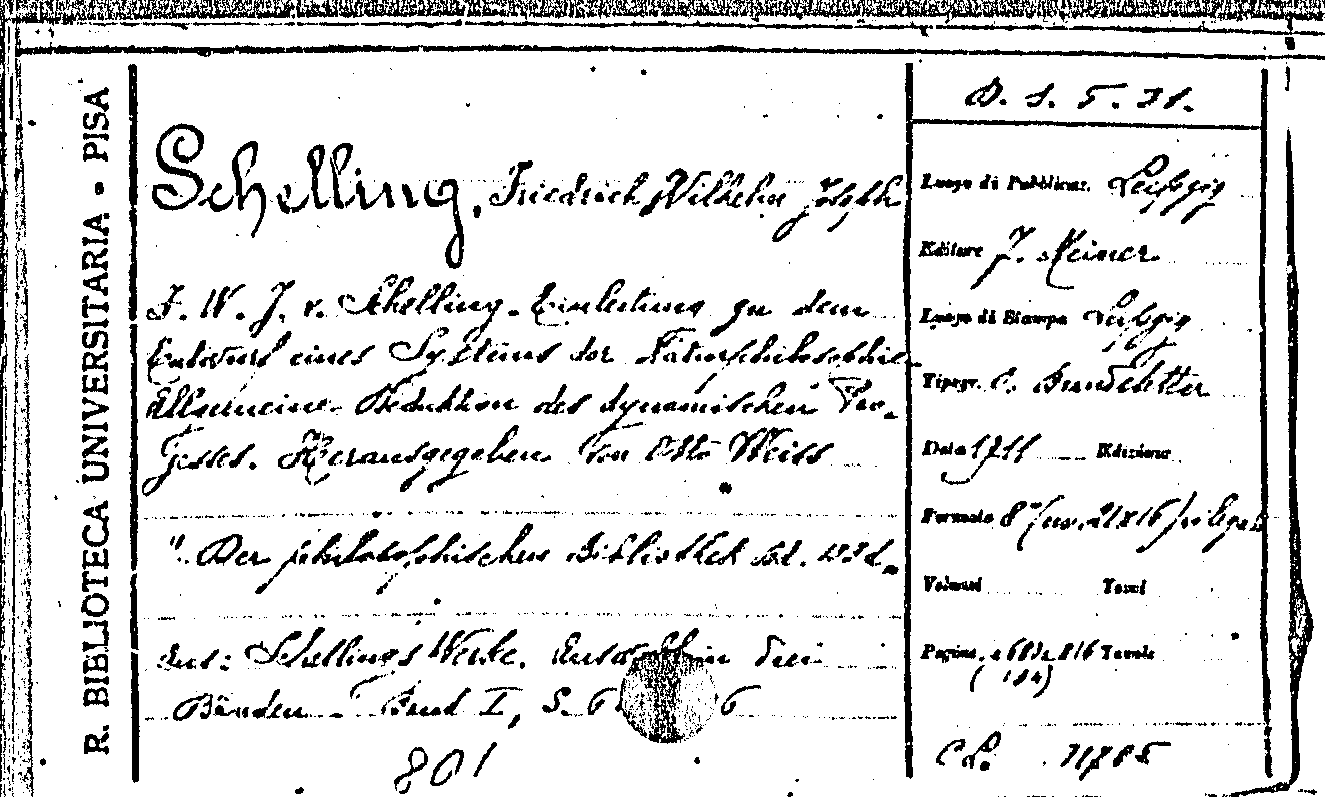 R. BIBLIOTECA UNIVERSITARIA - PISA
Schelling, Friedrich Wilhelm Joseph
F. W. J. v. Schelling - Einleitung zu dem
Entwurf eines Systems der Naturphilosophie
Allgemeine Deduktion des dynamischen Pro-
zesses. Herausgegeben von Otto Weiss
". Der philosophischen Bibliothek Bd.
Aus: Schellings Werke. Auswahl in drei
Bänden - Band I, S. 6 6
801
Luogo di Pubblicaz. Leipzig
Editore F. Meiner
Luogo di Stampa Leipzig
Tipogr. O.
Data Edizione
Formato 8°
Volumi Tomi
Pagine Tavole